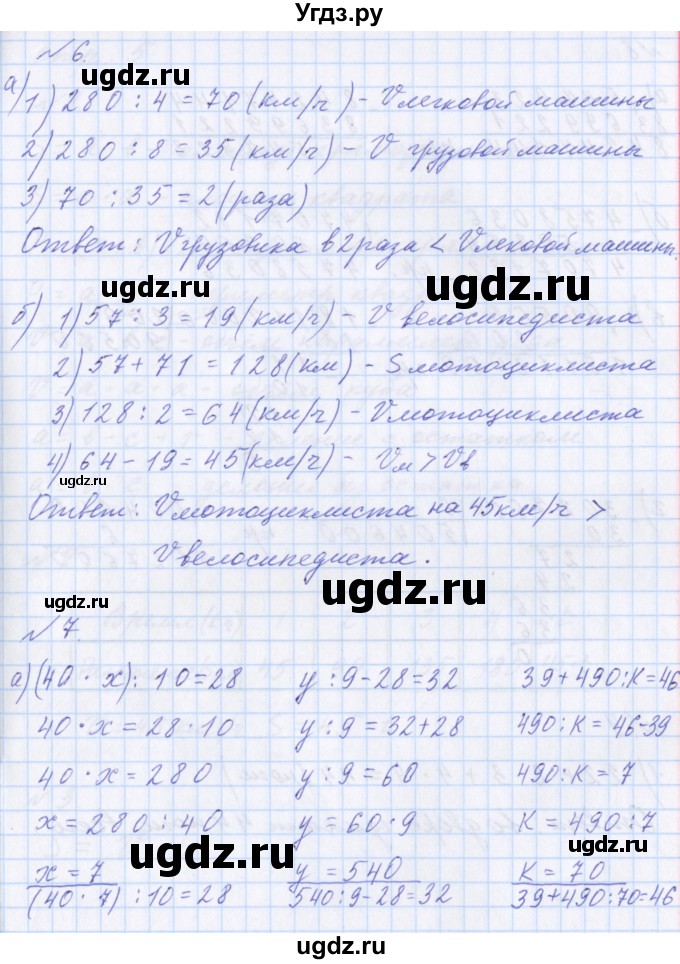 Угдз.ру
№6.
а) 1) 280 : 4 = 70 (км/ч) - Vлегковой машины
ugdz.ru
2) 280 : 8 = 35 (км/ч) - V грузовой машины
3) 70 : 35 = 2 (раза)
Ответ: Vгрузовика в 2 раза < Vлековой машины.
ugdz.ru ugdz.ru
б) 1) 57 : 3 = 19 (км/ч) - V велосипедиста
2) 57 + 71 = 128 (км) - S мотоциклиста
ugdz.ru
3) 128 : 2 = 64 (км/ч) - Vмотоциклиста
4) 64 - 19 = 45 (км/ч) - Vм > Vв
Ответ: Vмотоциклиста на 45км/ч >
ugdz.ru
Vвелосипедиста.
ugdz.ru
ugdz.ru
№7.
а) (40 · x) : 10 = 28 y : 9 - 28 = 32 39 + 490 : К = 46
40 · x = 28 · 10 y : 9 = 32 + 28 490 : К = 46 - 39
ugdz.ru
40 · x = 280 y : 9 = 60 490 : К = 7
x = 280 : 40 y = 60 · 9 К = 490 : 7
ugdz.ru ugdz.ru
x = 7 y = 540 К = 70
(40 · 7) : 10 = 28 540 : 9 - 28 = 32 39 + 490 : 70 = 46
ugdz.ru